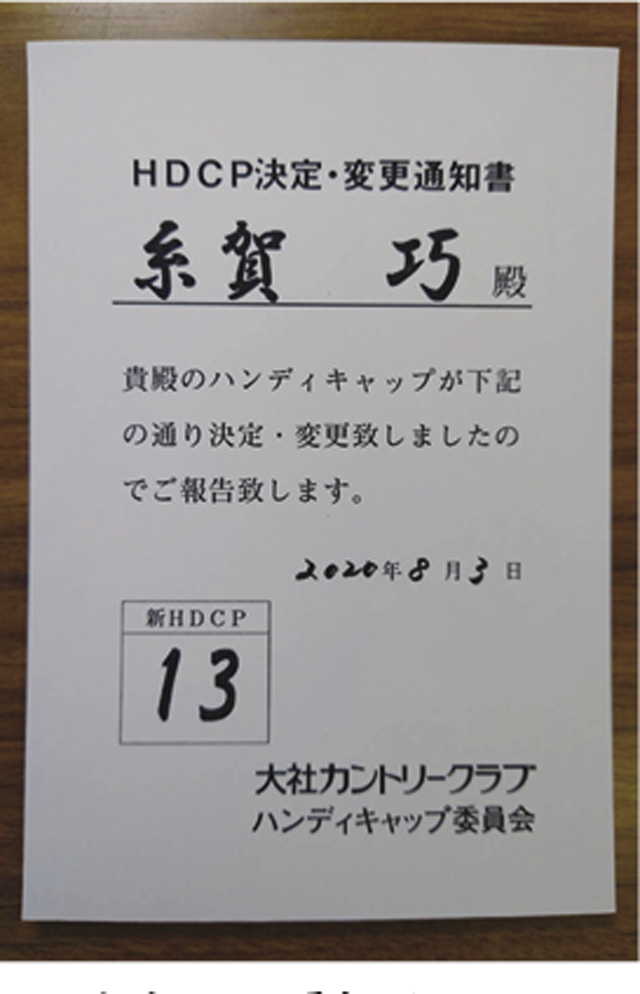 HDCP決定・変更通知書
糸賀 巧 殿
貴殿のハンディキャップが下記
の通り決定・変更致しましたの
でご報告致します。
2020年8月3日
新HDCP
13
大社カントリークラブ
ハンディキャップ委員会